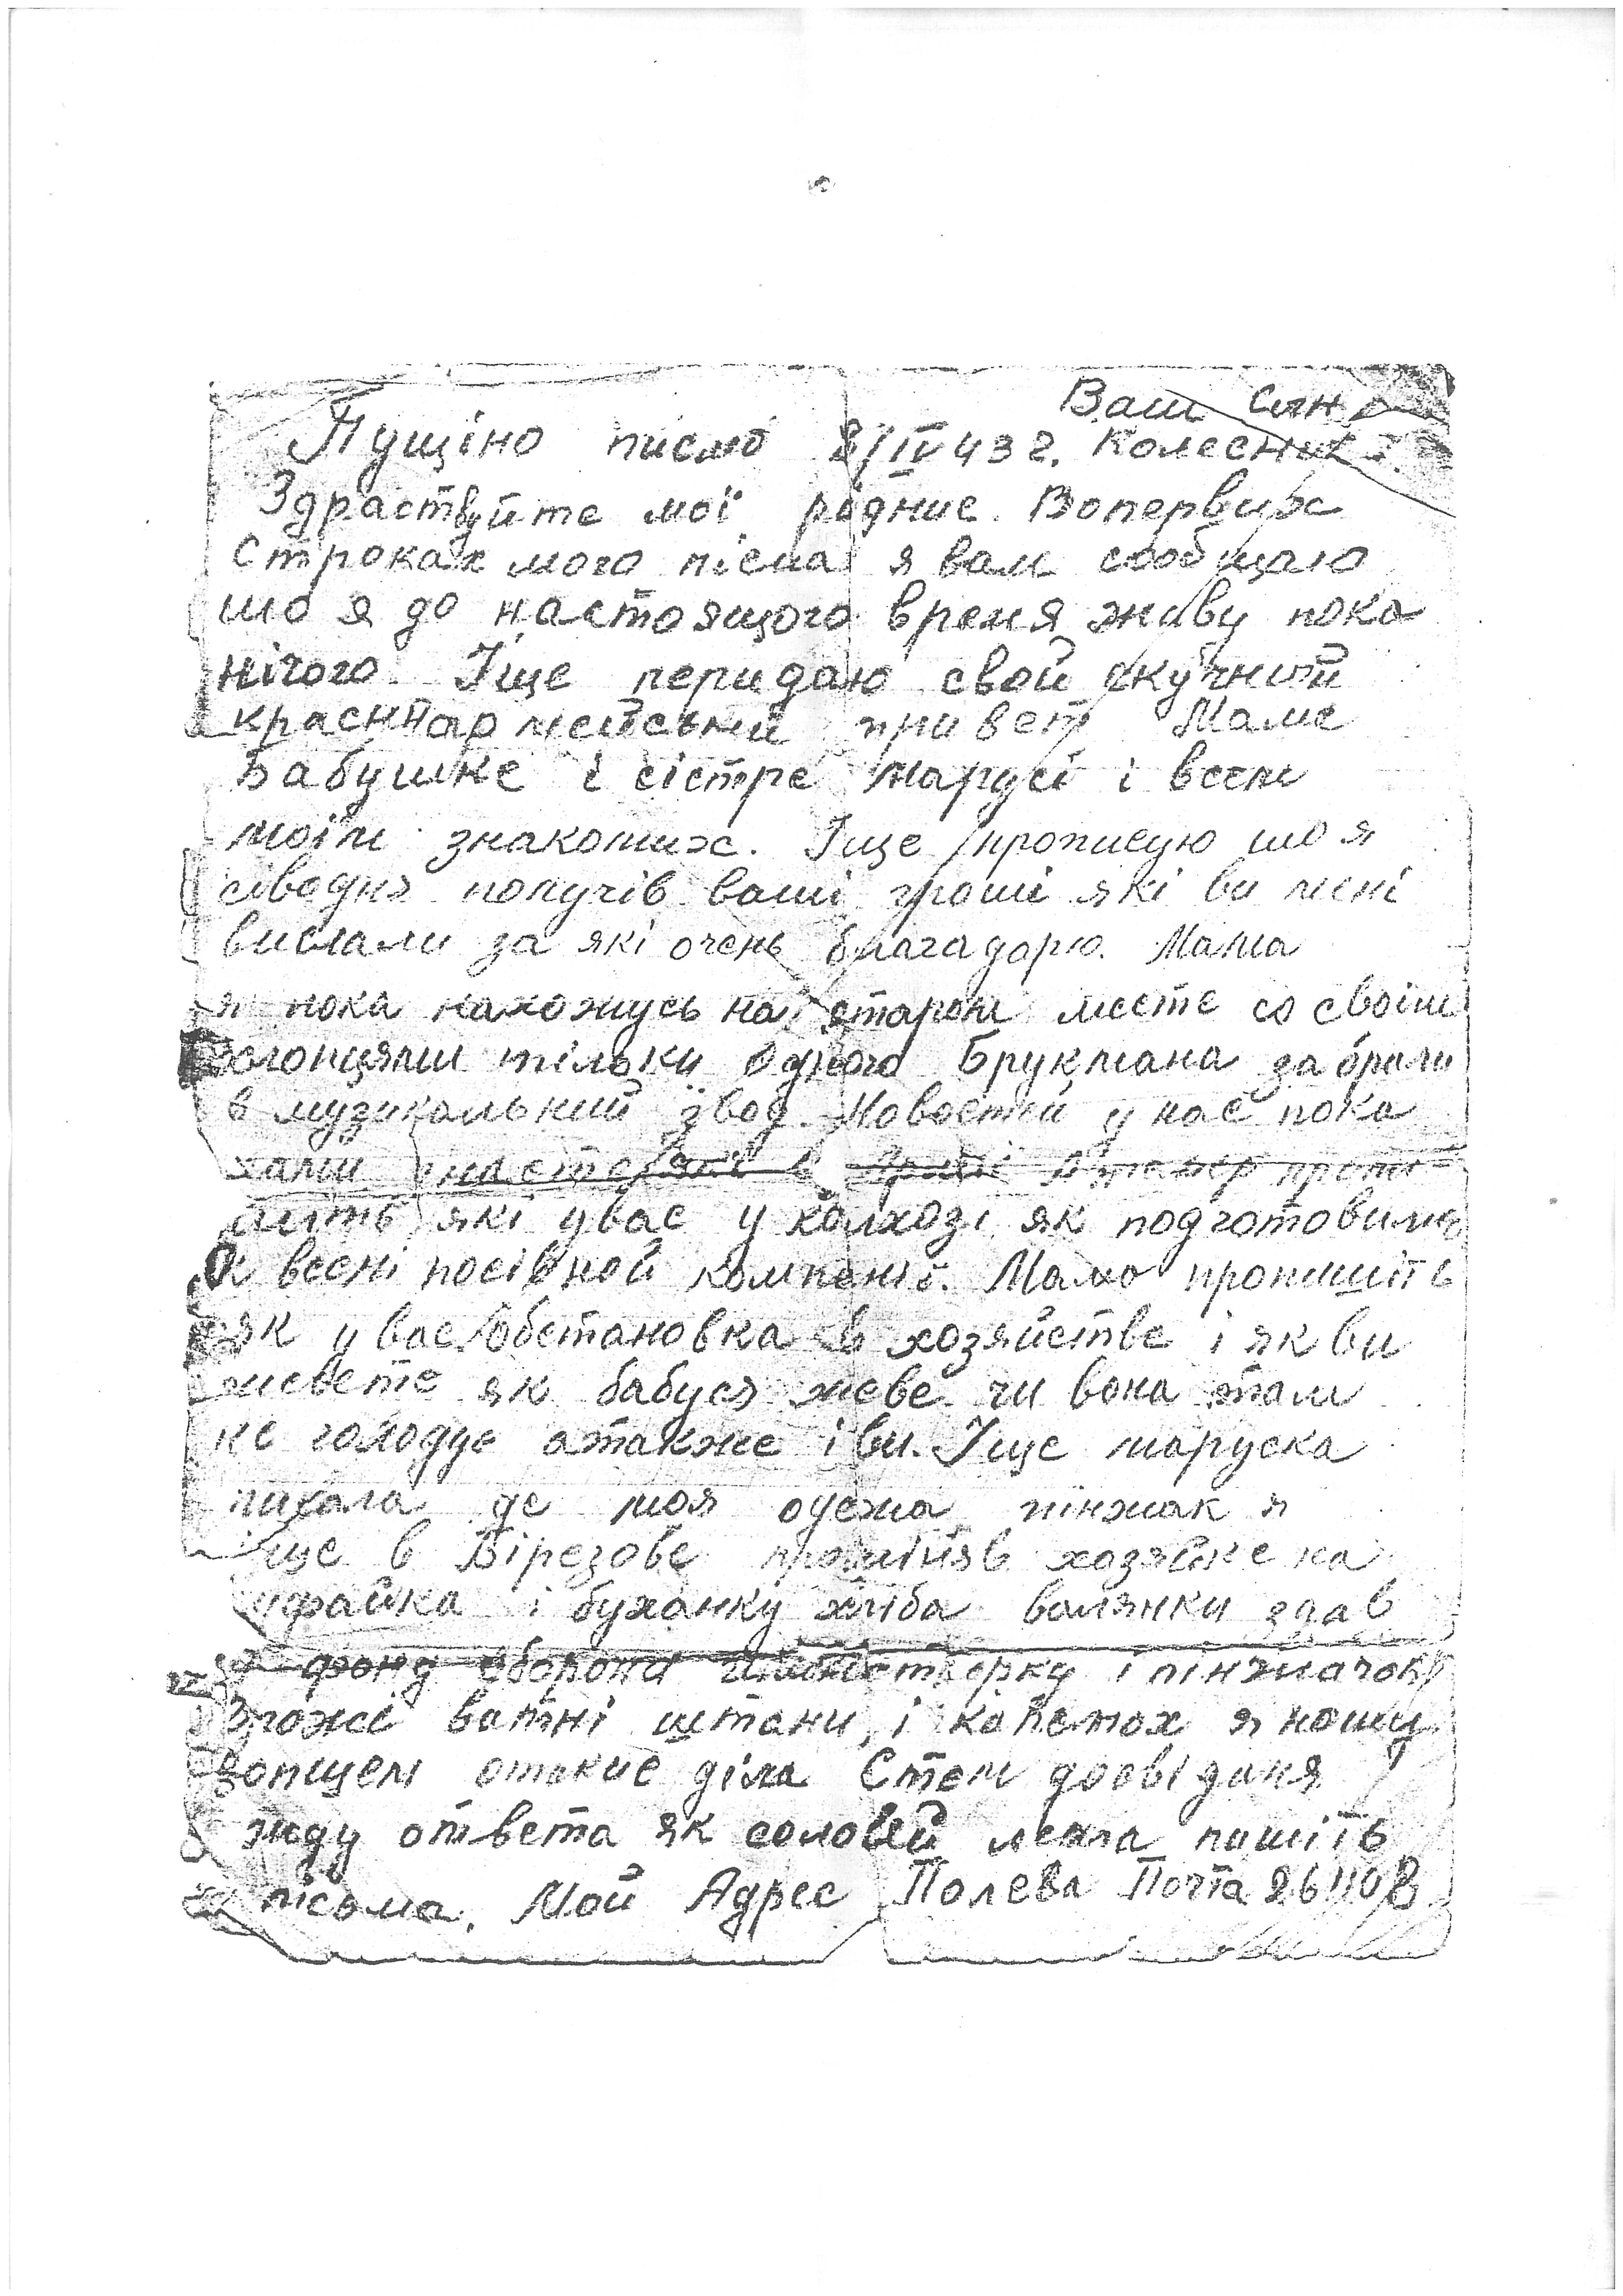 Ваш Син
Пущіно письмо 8/IV 43 г. Колесник
Здраствуйте мої родние. Вопервих
Строках мого пісма я вам сообщаю
шо я до настоящого время живу пока
нічого. Іще перидаю свой скучний
красноармейський привет Маме
Бабушке і сістре Марусі і всем
моїм знакомих. Іще прописую шо я
сіводня получів ваші гроші які ви мені
вислали за які очень благадарю. Мама
я пока нахожусь на старом месте со своїм
хлопцями тільки Одного Брукмана забрали
в музикальний звод. Новостей у нас пока
тепер пропи-
шіть які увас у колхозі як подготовились
К весні посівной компанії. Мамо пропишіть
як у вас Обстановка в хозяйстве і як ви
живете як бабуся живе чи вона там
не голодує атакже і ви. Іще маруска
пихала де моя одежа пінжак я
іще в Бірезове проміняв хозяйке на
уфайка і буханку хліба валянки здав
в фонд оборони гимнастьорку і пінжачок
Втожі ватні штани, і
вопщем отакие діла Стем досвіданя
жду ответа як соловей лета пишіть
пісьма. Мой Адрес Полева Почта 26408